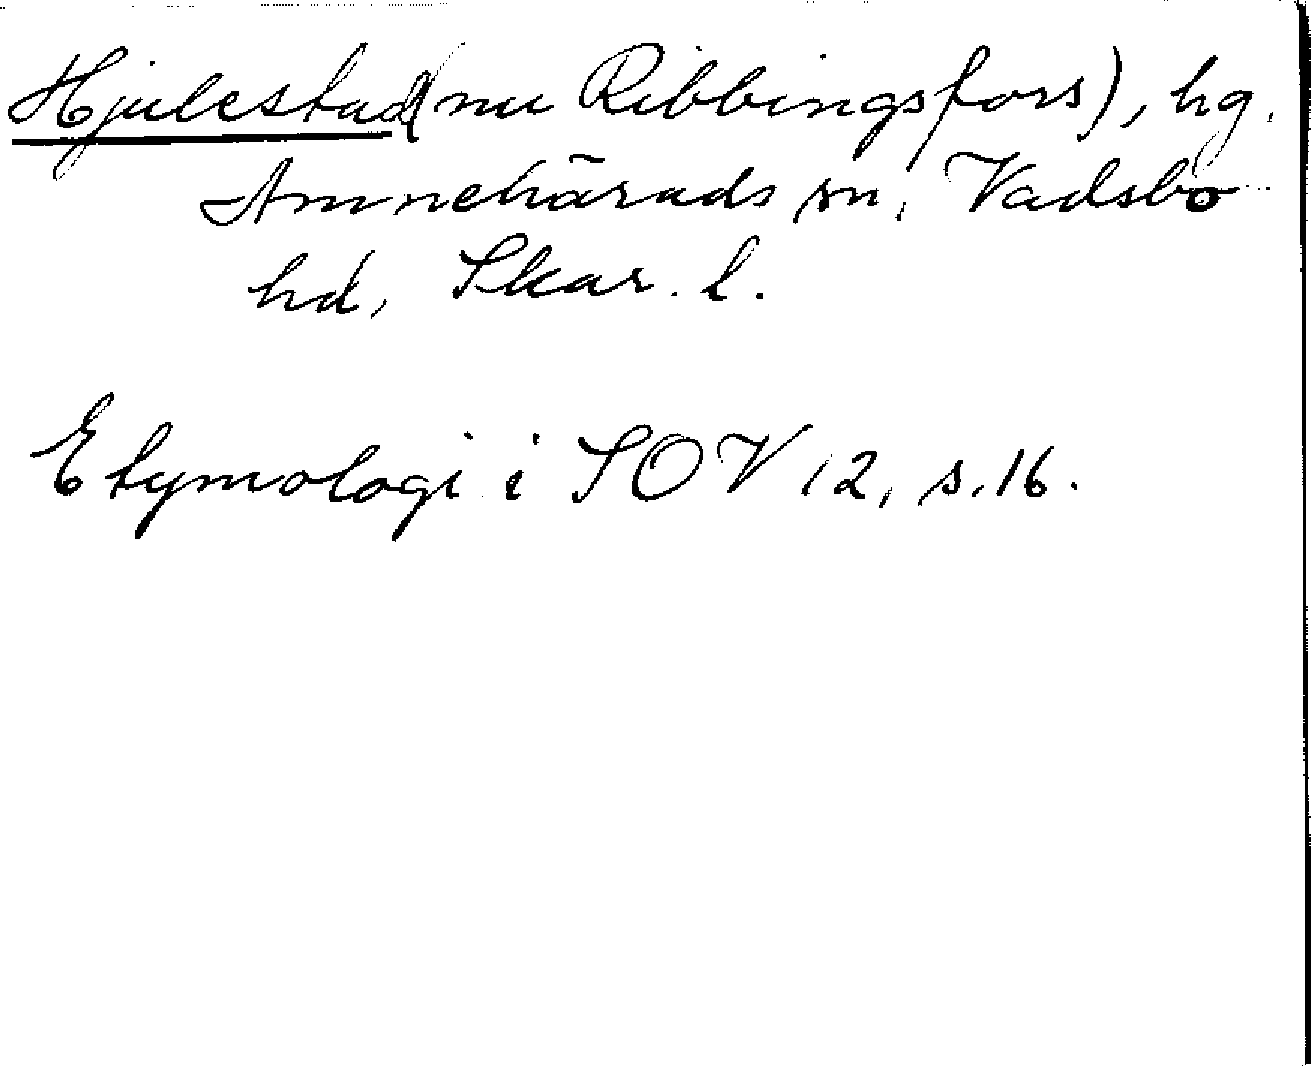 Hjulestad (nu Ribbingsfors), hg.
Amnehärads sn, Vadsbo
hd, Skar. l.
Etymologi i SOV 12, s. 16.